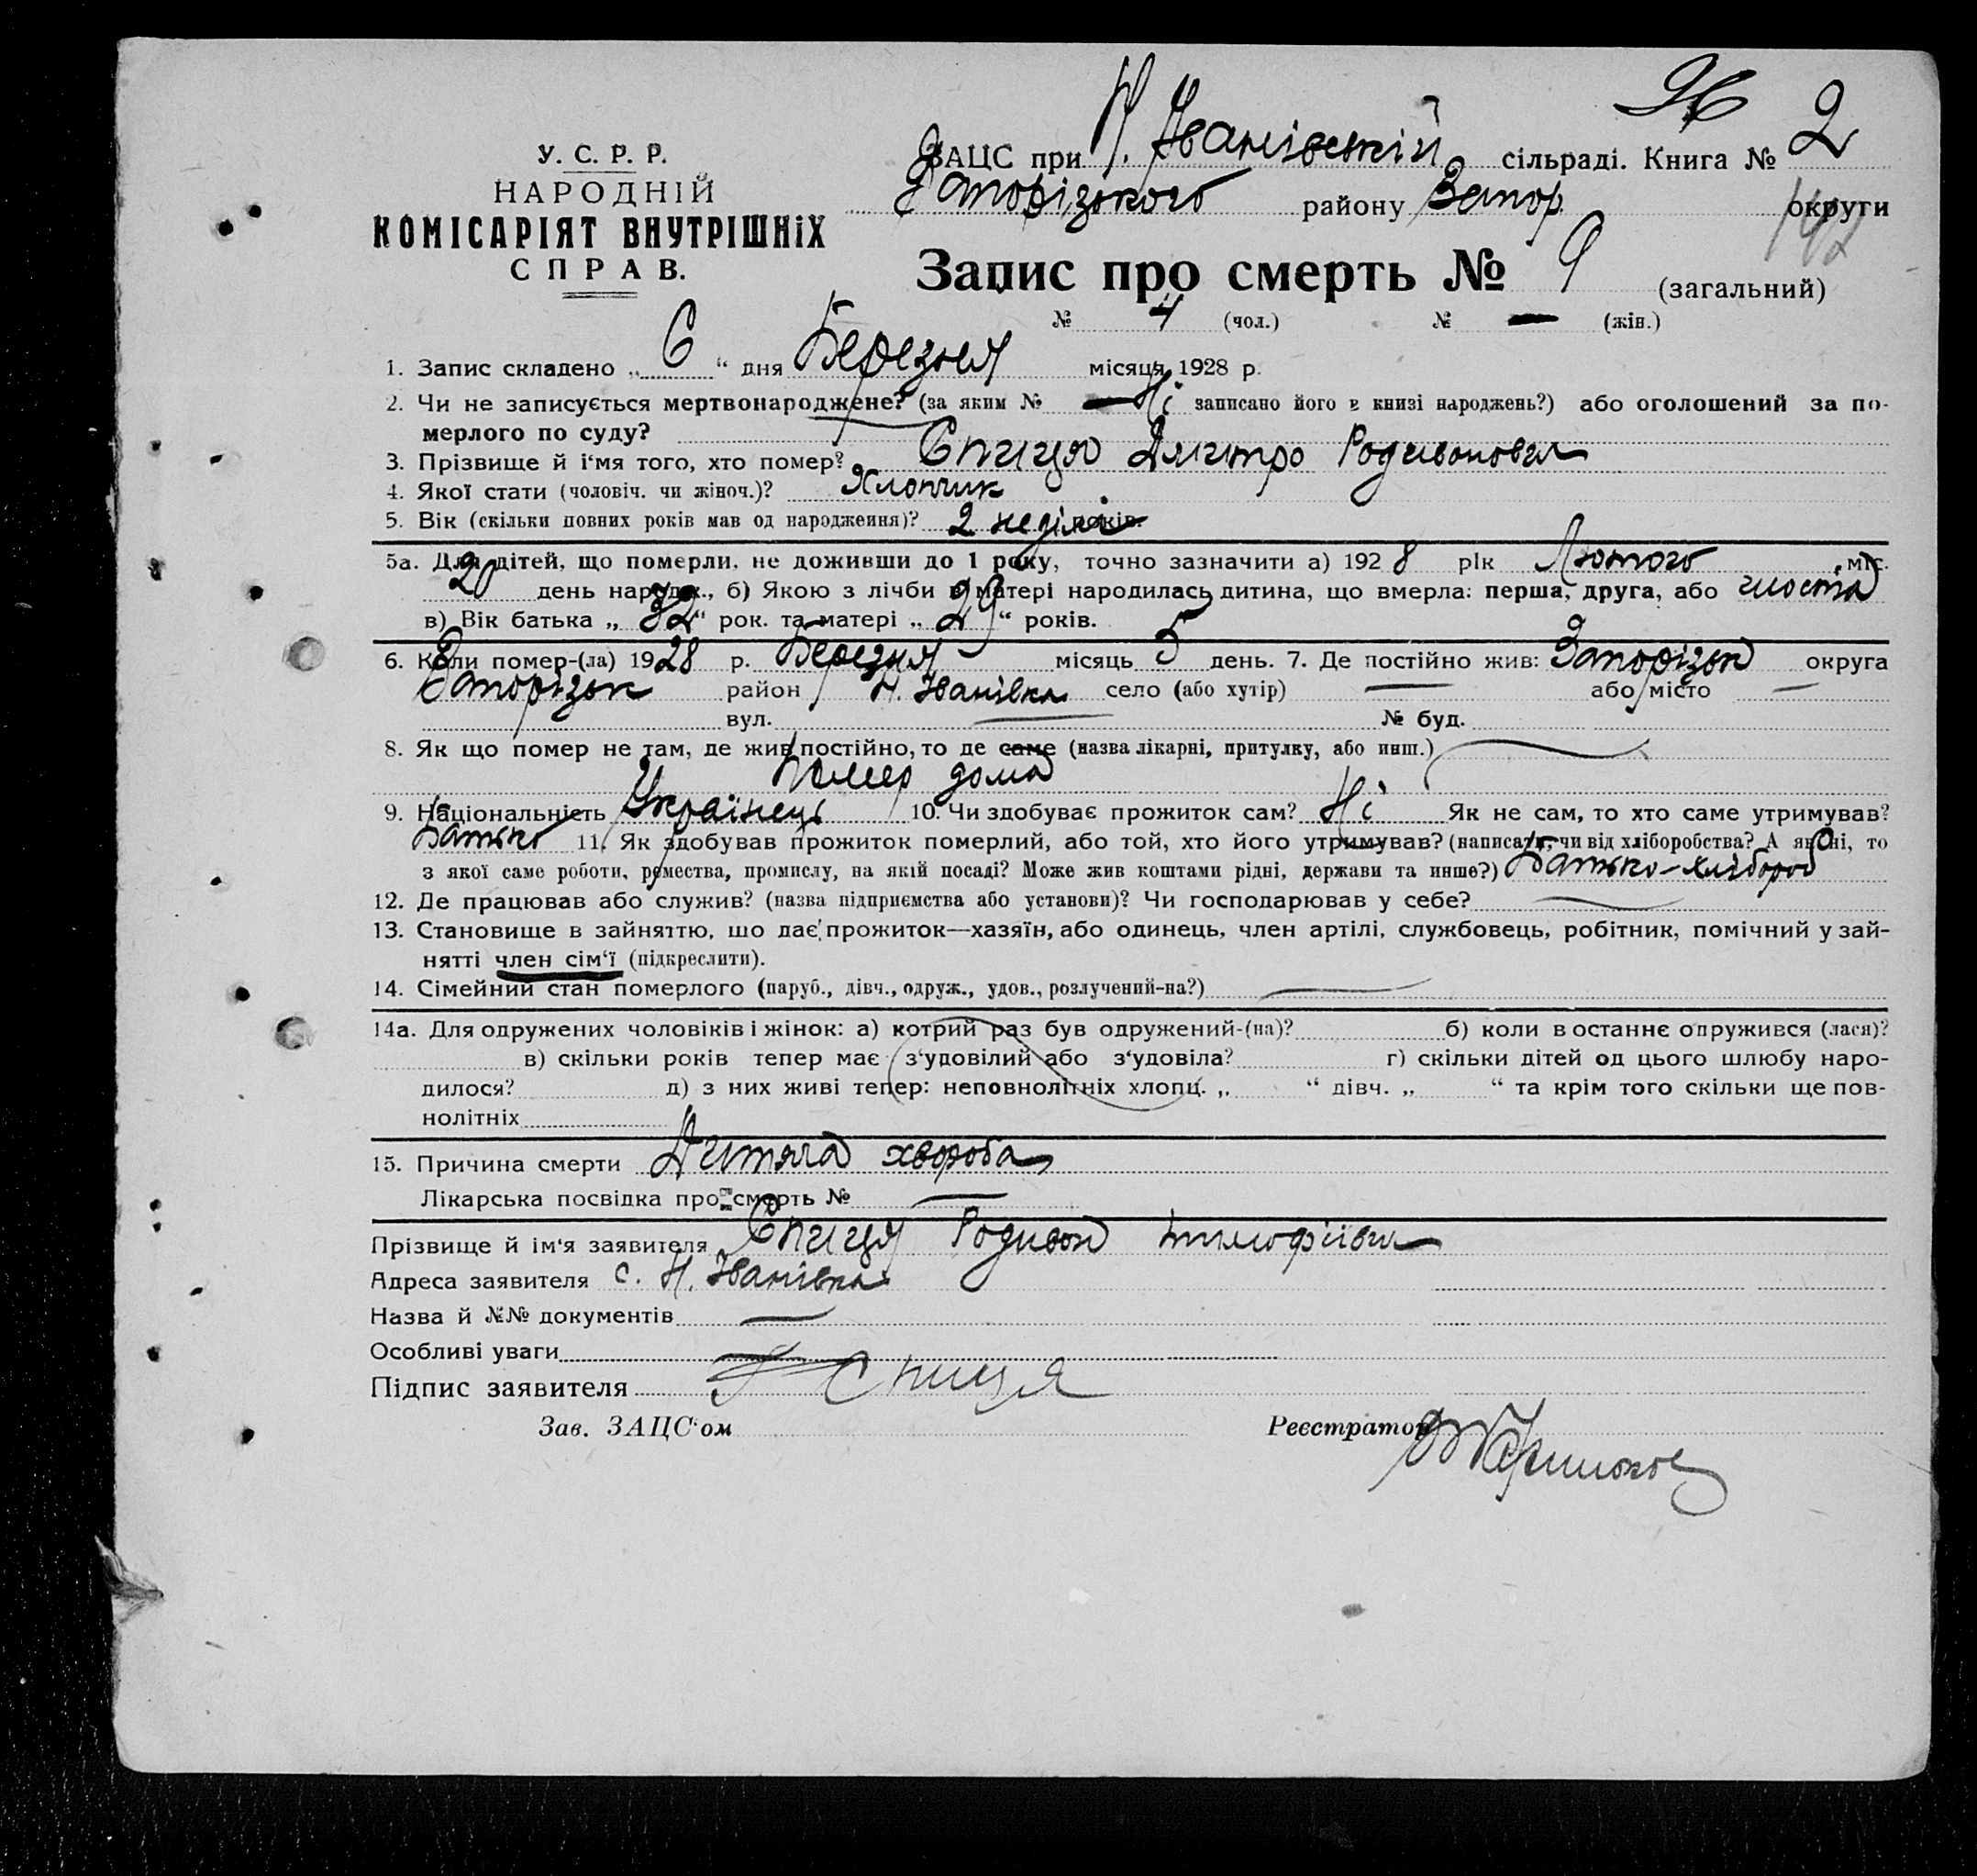 У. С. Р. Р.
НАРОДНІЙ
КОМІСАРІЯТ ВНУТРІШНІХ
СПРАВ.
ЗАЦС при Н. Іванівській сільраді. Книга № 2
Запорізького району Запор округи
142
Запис про смерть № 9 (загальний)
№ 4 (чол.) № — (жін.)
1. Запис складено „ 6 “ дня Березня місяця 1928 р.
2. Чи не записується мертвонароджене? (за яким № — Ні записано його в книзі народжень?) або оголошений за по-
мерлого по суду?
3. Прізвище й і‘мя того, хто помер? Спиця Дмитро Родивонович
4. Якої стати (чоловіч. чи жіноч.)? Хлопчик
5. Вік (скільки повних років мав од народження)? 2 неділі років.
5а. Для дітей, що померли, не доживши до 1 року, точно зазначити а) 1928 рік Лютого міс.
20 день народж., б) Якою з лічби в матері народилась дитина, що вмерла: перша, друга, або шоста
в) Вік батька „ 32 “ рок. та матері „ 29 “ років.
6. Коли помер-(ла) 1928 р. Березня місяць 5 день. 7. Де постійно жив: Запорізьк округа
Запорізьк район Н. Іванівка село (або хутір) — або місто —
вул. — № буд.
8. Як що помер не там, де жив постійно, то де саме (назва лікарні, притулку, або инш.)
Помер дома
9. Національність Українець 10. Чи здобуває прожиток сам? Ні Як не сам, то хто саме утримував?
Батько 11. Як здобував прожиток померлий, або той, хто його утримував? (написати, чи від хліборобства? А як ні, то
з якої саме роботи, ремества, промислу, на якій посаді? Може жив коштами рідні, держави та инше?) Батько-хлібороб
12. Де працював або служив? (назва підприємства або установи)? Чи господарював у себе? —
13. Становище в зайняттю, що дає прожиток—хазяїн, або одинець, член артілі, службовець, робітник, помічний у зай-
нятті член сім‘ї (підкреслити).
14. Сімейний стан померлого (паруб., дівч., одруж., удов., розлучений-на?) —
14а. Для одружених чоловіків і жінок: а) котрий раз був одружений-(на)? б) коли востаннє одружився (лася)?
в) скільки років тепер має з‘удовілий або з‘удовіла? г) скільки дітей од цього шлюбу наро-
дилося? д) з них живі тепер: неповнолітніх хлопц. „ “ дівч. „ “ та крім того скільки ще пов-
нолітніх
15. Причина смерти Дитяча хвороба
Лікарська посвідка про смерть № —
Прізвище й ім‘я заявителя Спиця Родивон Тимофіївич
Адреса заявителя с. Н. Іванівка
Назва й №№ документів —
Особливі уваги
Підпис заявителя Спиця
Зав. ЗАЦС‘ом Реєстратор